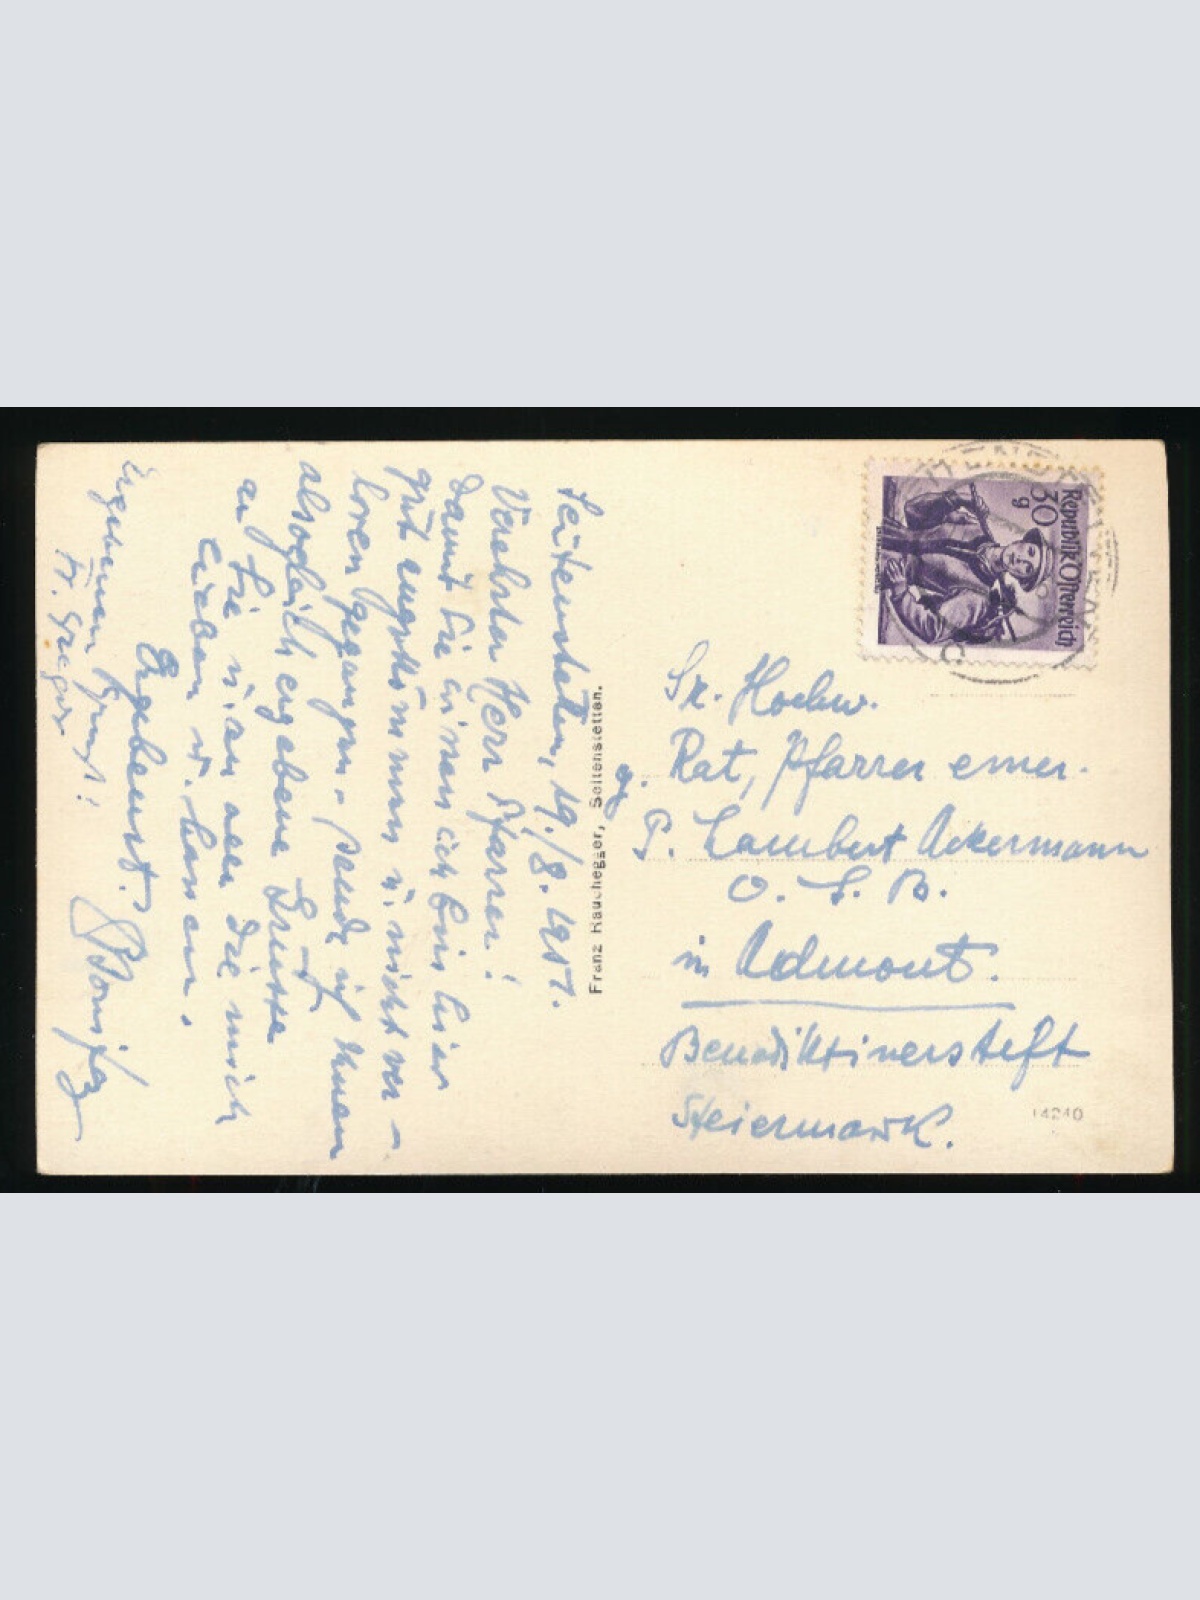 Seitenstetten, 19./8. 1951.
Verehrter Herr Pfarrer!
Damit Sie wissen ich bin hier
gut angekommen u. nicht ver-
loren gegangen, sende ich Ihnen
alsogleich ergebene Grüsse
an Sie u. an alle die mich
lieben u. hassen.
Ergebenst.
Bonifaz
Fr. Gregor
Franz Rauchegger, Seitenstetten.
Republik Österreich
30 g
Sr. Hochw.
g. Rat, Pfarrer emer.
P. Lambert Ackermann
O. S. B.
in Admont.
Benediktinerstift
Steiermark.
14240